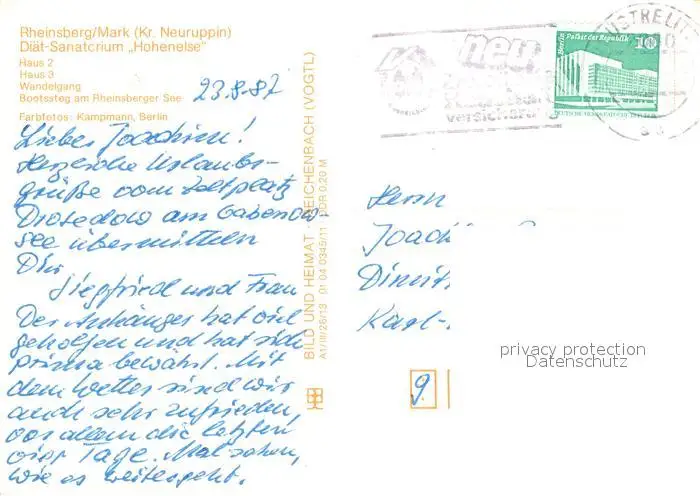 Rheinsberg/Mark (Kr. Neuruppin)
Diät-Sanatorium „Hohenelse"
Haus 2
Haus 3
Wandelgang
Bootssteg am Rheinsberger See
Farbfotos: Kampmann, Berlin
23.8.87
Lieber Joachim!
Herzliche Urlaubs-
grüße vom Zeltplatz
Drosedow am Gobenow-
see übermitteln
Dir
Siegfried und Frau
Der Anhänger hat viel
geholfen und hat sich
prima bewährt. Mit
dem Wetter sind wir
auch sehr zufrieden,
vor allem die letzten
vier Tage. Mal sehen,
wie es weitergeht.
BILD UND HEIMAT · REICHENBACH (VOGTL)
A1/III/26/13 01 04 0345/11 DDR 0,20 M
neu
versicherung
USTRELITZ
Berlin Palast der Republik
10
DEUTSCHE DEMOKRATISCHE REPUBLIK
Herrn
Joach
Dimit
Karl-
privacy protection
Datenschutz
9